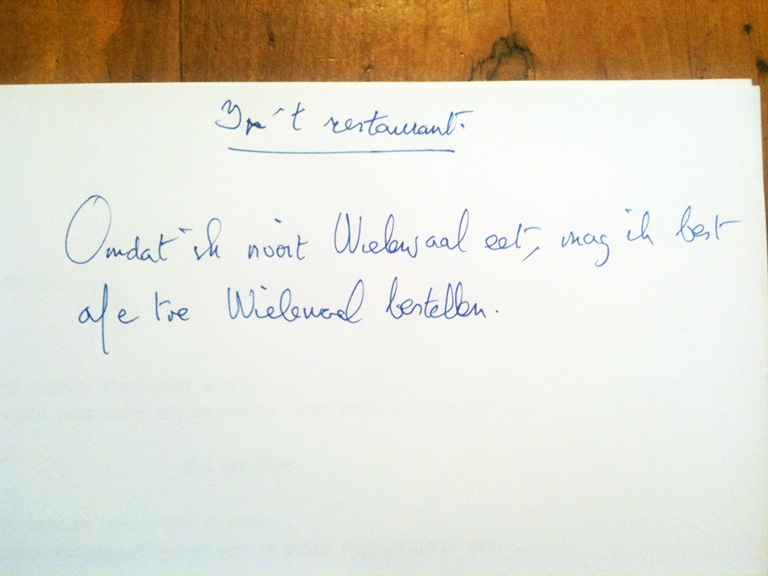 In 't restaurant.
Omdat ik nooit Wielewaal eet, mag ik best
af e toe Wielewaal bestellen.